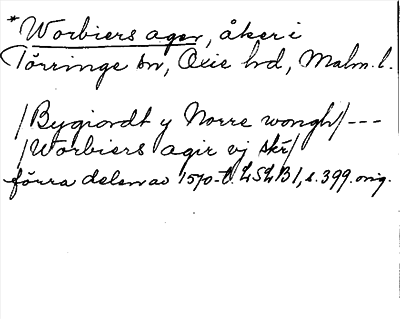 *Worbiers ager, åker i
Törringe sn, Oxie hd, Malm. l.
/Bygiordt y Norre wongh/ ---
/Worbiers agir vj skr/
förra delen av 1570-t. LSLB1, s. 399. orig.